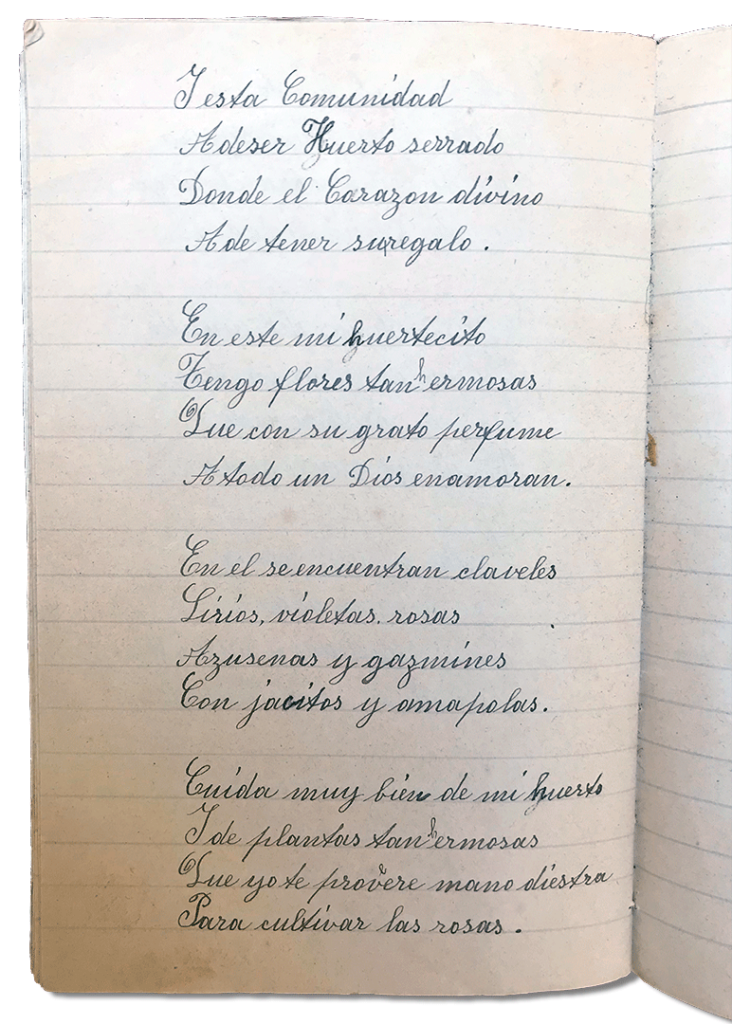 I esta Comunidad
Adeser Huerto serrado
Donde el Corazon divino
A de tener suregalo.
En este mi huertecito
Tengo flores tan hermosas
Que con su grato perfume
A todo un Dios enamoran.
En el se encuentran claveles
Lirios, violetas. rosas
Azusenas y gazmines
Con jacitos y amapolas.
Cuida muy bien de mi huerto
I de plantas tan hermosas
Que yo te provere mano diestra
Para cultivar las rosas.